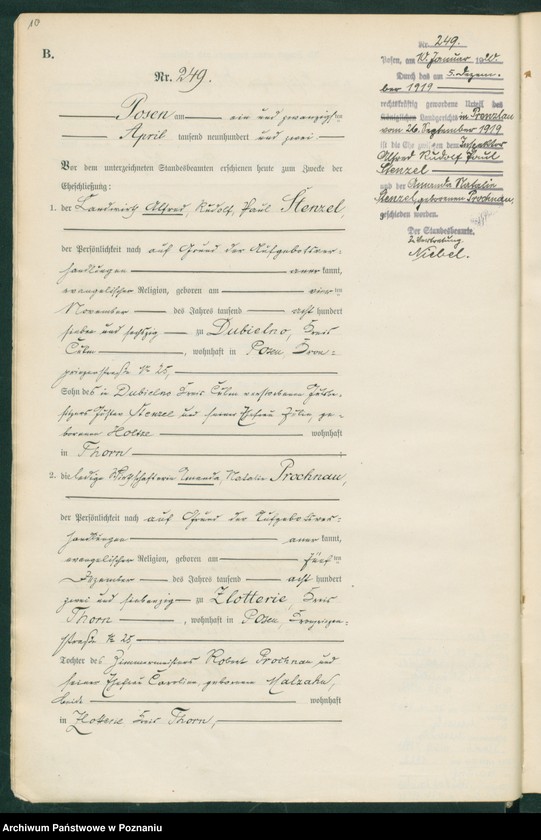 10
B.
Nr. 249.
Posen, am ein und zwanzigsten
April tausend neunhundert und zwei
Vor dem unterzeichneten Standesbeamten erschienen heute zum Zwecke der
Eheschließung:
1. der Landwirth Alfred, Rudolf, Paul Stenzel,
der Persönlichkeit nach auf Grund der Aufgebotsver-
handlungen anerkannt,
evangelischer Religion, geboren am vierten
November des Jahres tausend acht hundert
sieben und sechszig zu Dubielno, Kreis
Culm, wohnhaft in Posen,
straße Nr 25,
Sohn des in Dubielno Kreis Culm verstorbenen
Stenzel und seiner Ehefrau ge-
borenen wohnhaft
in Thorn
2. die ledige Wirthschafterin Amanda, Natalie Prochnau,
der Persönlichkeit nach auf Grund der Aufgebotsver-
handlungen anerkannt,
evangelischer Religion, geboren am fünften
Dezember des Jahres tausend acht hundert
zwei und siebenzig zu Zlotterie, Kreis
Thorn, wohnhaft in Posen,
straße Nr 25,
Tochter des Zimmermeisters Robert Prochnau und
seiner Ehefrau Caroline, geborenen Malzahn,
beide wohnhaft
in Zlotterie Kreis Thorn,
Nr. 249.
Posen, am 10. Januar 1920.
Durch das am 5. Dezem-
ber 1919
rechtskräftig gewordene Urteil des
Königlichen Landgerichts in Prenzlau
vom 26. September 1919
ist die Ehe zwischen dem Inspektor
Alfred Rudolf Paul
Stenzel
und der Amanda Natalie
Stenzel geborenen Prochnau,
geschieden worden.
Der Standesbeamte.
In Vertretung.
Niebel.
Archiwum Państwowe w Poznaniu